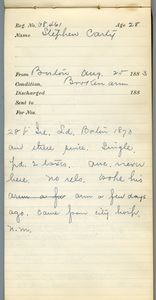 Reg. No. 98.461 Age 28
Name Stephen Carty
From Boston Aug. 25 1883
Condition, Broken arm
Discharged 188
Sent to
For No.
28 f Ire. Ld. Boston 1873
and there since. Single
pd. 2 taxes. Anc. never
here. No rels. Broke his
arm a few days
ago. Came from city hosp.
N.M.